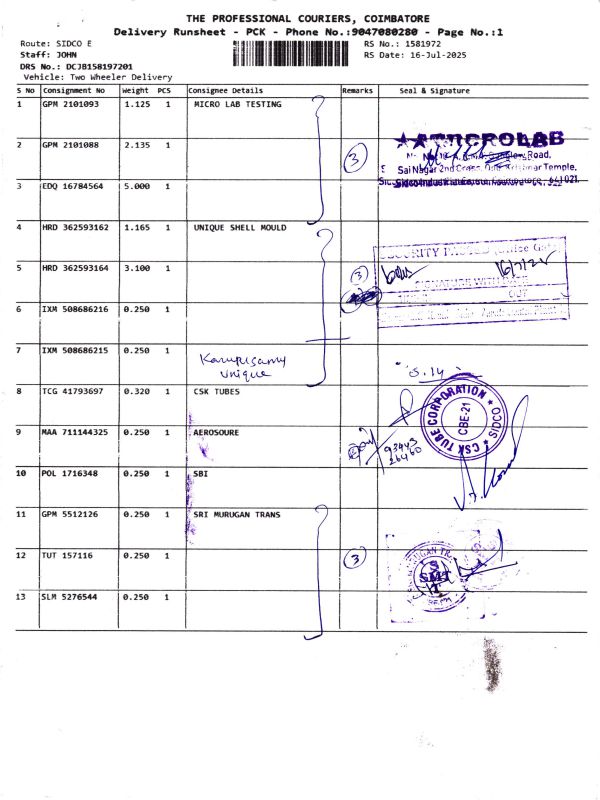 THE PROFESSIONAL COURIERS, COIMBATORE
Delivery Runsheet - PCK - Phone No.:9047080280 - Page No.:1
Route: SIDCO E RS No.: 1581972
Staff: JOHN RS Date: 16-Jul-2025
DRS No.: DCJB158197201
Vehicle: Two Wheeler Delivery
S No Consignment No Weight PCS Consignee Details Remarks Seal & Signature
1 GPM 2101093 1.125 1 MICRO LAB TESTING
2 GPM 2101088 2.135 1 3
MICROLAB
Road,
Sai Nagar 2nd Cross, Temple,
3 EDQ 16784564 5.000 1
4 HRD 362593162 1.165 1 UNIQUE SHELL MOULD
SECURITY
5 HRD 363593164 3.100 1 3
SIGNATURE
OUT
6 IXM 508686216 0.250 1
7 IXM 508686215 0.250 1 Karupusamy
unique
5.14
8 TCG 41793697 0.320 1 CSK TUBES
CSK TUBE CORPORATION
CBE-21
SIDCO
9 MAA 711144325 0.250 1 AEROSOURE
10 POL 1716348 0.250 1 SBI
11 GPM 5512126 0.250 1 SRI MURUGAN TRANS
12 TUT 157116 0.250 1 3
SMT
13 SLM 5276544 0.250 1